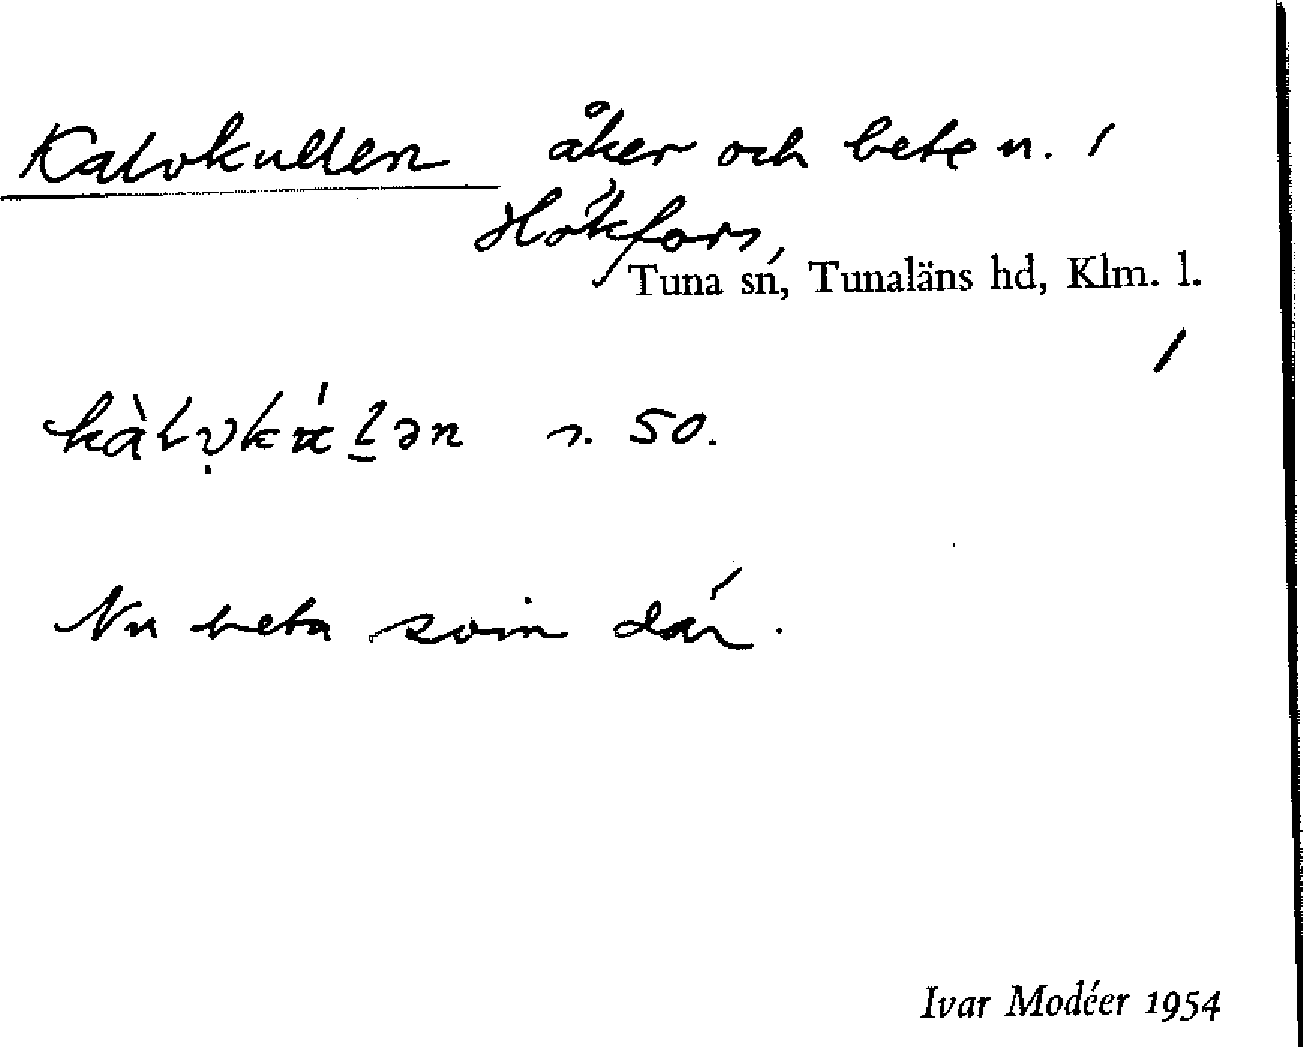 Kalvkullen åker och bete n. 1
Hökfors,
Tuna sn, Tunaläns hd, Klm. l.
1
s. 50.
Nu beta som där.
Ivar Modéer 1954